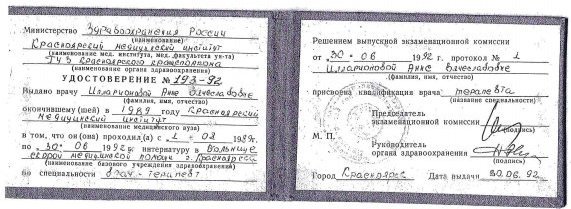 Министерство Здравоохранения России
(наименование)
Красноярский медицинский институт
(наименование мед. института, мед. факультета ун-та)
ГУЗ Красноярского крайисполкома
(наименование органа здравоохранения)
УДОСТОВЕРЕНИЕ № 193-92
Выдано врачу Илларионовой Анне Вячеславовне
(фамилия, имя, отчество)
окончившему(шей) в 1989 году Красноярский
медицинский институт
(наименование медицинского вуза)
в том, что он(а) проходил(а) с 1 - 08 1989г.
по 30 - 06 1992г. интернатуру в Больнице
скорой медицинской помощи г. Красноярска
(наименование базового учреждения здравоохранения)
по специальности врач - терапевт
Решением выпускной экзаменационной комиссии
от 30 - 06 1992 г. протокол № 1
Илларионовой Анне Вячеславовне
(фамилия, имя, отчество)
присвоена квалификация врача терапевта
(название специальности)
Председатель
экзаменационной комиссии
(подпись)
М. П.
Руководитель
органа здравоохранения
(подпись)
Город Красноярск Дата выдачи 30.06.92